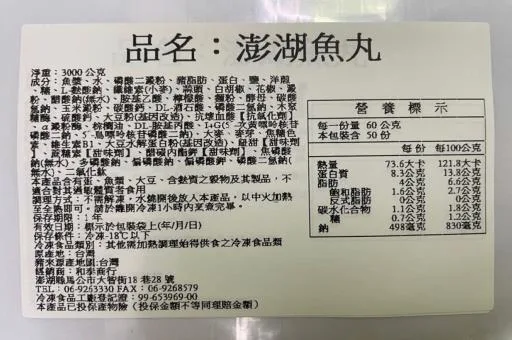 品名：澎湖魚丸
淨重：3000 公克
成分：魚漿、水、磷酸二澱粉、豬脂肪、蛋白、鹽、洋蔥
、糖、L-麩酸鈉、纖維素(小麥)、蒜頭、白胡椒、花椒、澱
粉、醋酸鈉(無水)、胺基乙酸、檸檬酸、麵粉、酵母、碳酸
氫鈉、玉米澱粉、碳酸鈣、DL-酒石酸、磷酸二氫鈉、木瓜
糖酶、硫酸鈣、大豆粉(基因改造)、抗壞血酸【抗氧化劑】
、α澱粉酶、棕櫚油、DL-胺基丙酸、I+G(5-次黃嘌呤核苷
磷酸二鈉、5-鳥嘌呤核苷磷酸二鈉)、大麥、麥芽、焦糖色
素、維生素B1、大豆水解蛋白(基因改造)、
(無水)、多磷酸鈉、偏磷酸鈉、偏磷酸鉀、磷酸二氫鈉(
無水)、二氧化鈦
本產品含有蛋、魚類、大豆、含麩質之穀物及其製品，不
適合對其過敏體質者食用
調理方式：不需解凍，水燒開後放入本產品，以中火加熱
保存期限：1 年
有效日期：標示於包裝袋上(年/月/日)
保存條件：冷凍-18℃以下
冷凍食品類別：其他需加熱調理始得供食之冷凍食品類
原產地：台灣
豬來源產地國:台灣
經銷商：和泰商行
澎湖縣馬公市大智街18 巷28 號
TEL：06-9263330 FAX：06-9268579
冷凍食品工廠登記證：99-653969-00
本產品已投保產物險（投保金額不等同理賠金額）
營養標示
每一份量 60 公克
本包裝含 50 份
每份 每100公克
熱量 73.6大卡 121.8大卡
蛋白質 8.3公克 13.8公克
脂肪 4公克 6.6公克
飽和脂肪 1.6公克 2.7公克
反式脂肪 0公克 0公克
碳水化合物 1.1公克 1.8公克
糖 0.7公克 1.2公克
鈉 498毫克 830毫克